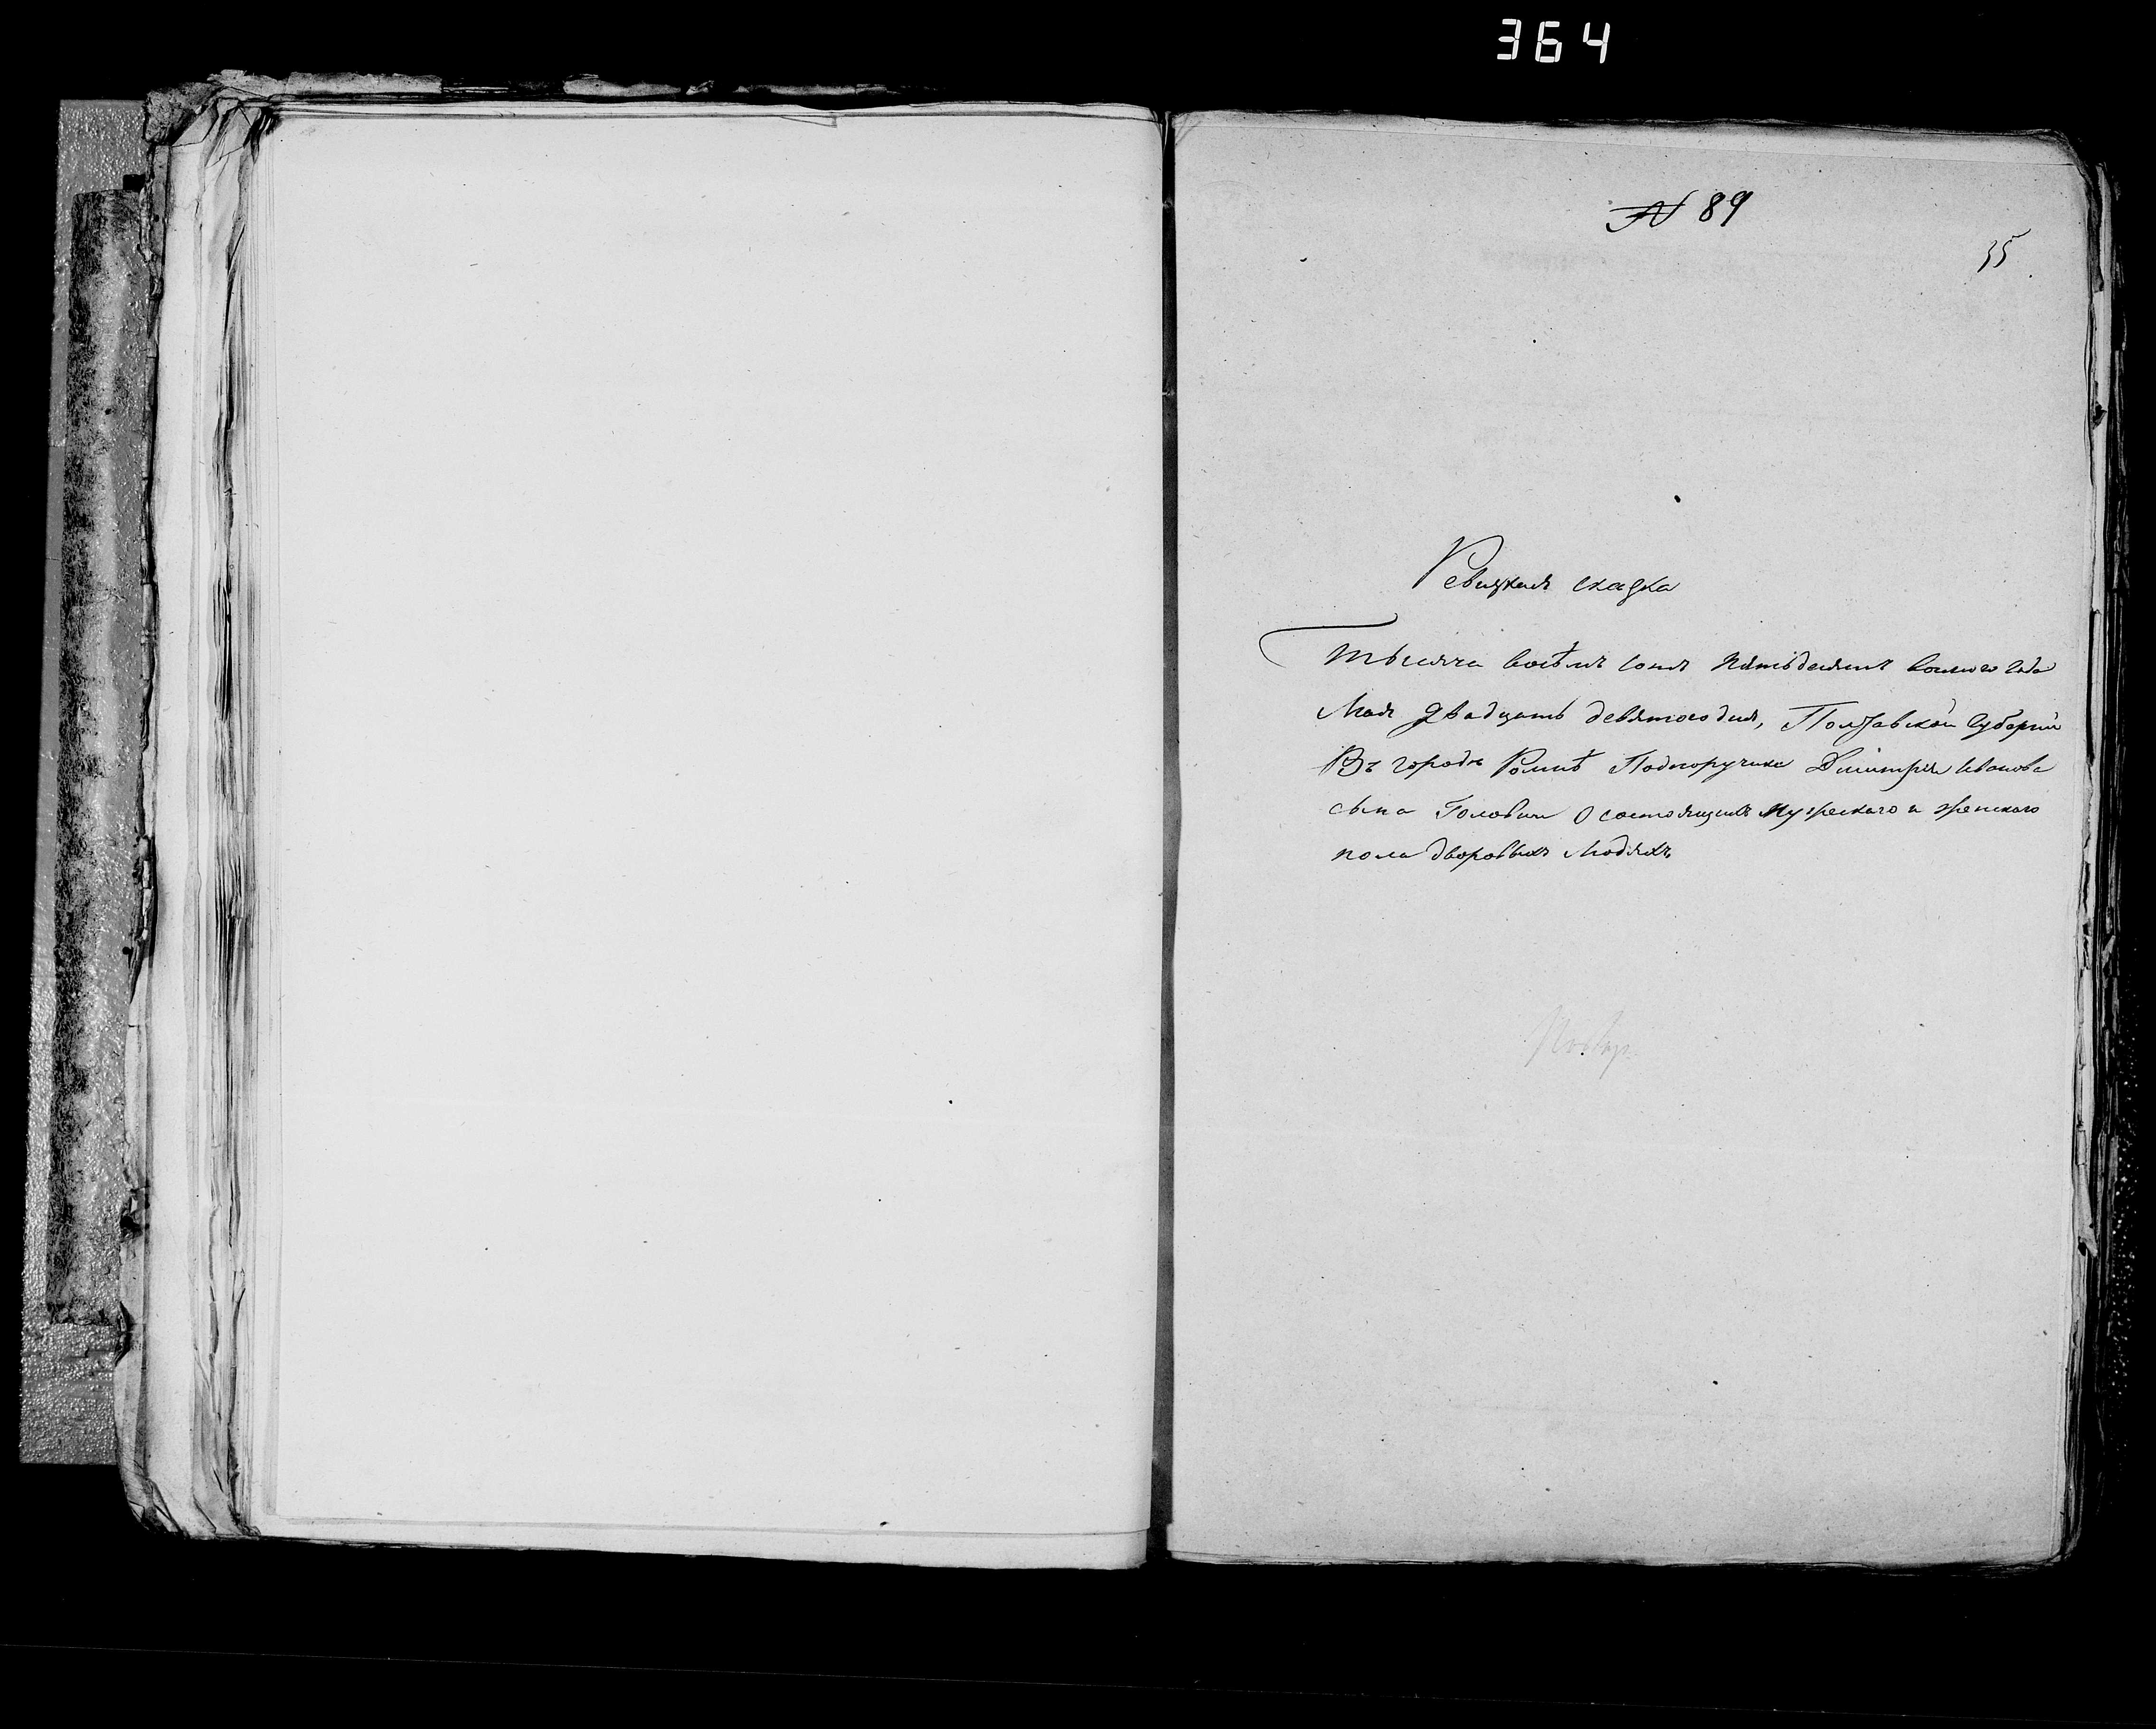 364
№ 89
35
Ревизкая сказка
Тысяча восѣмъ сотъ пятьдесятъ восмого года
Мая двадцать девятого дня, Полтавской Губерніи
Въ городе Ромнѣ Подпоручика Дмитрія Иванова
сына Головни О состоящихъ мужескаго и женскаго
пола дворовыхъ людяхъ